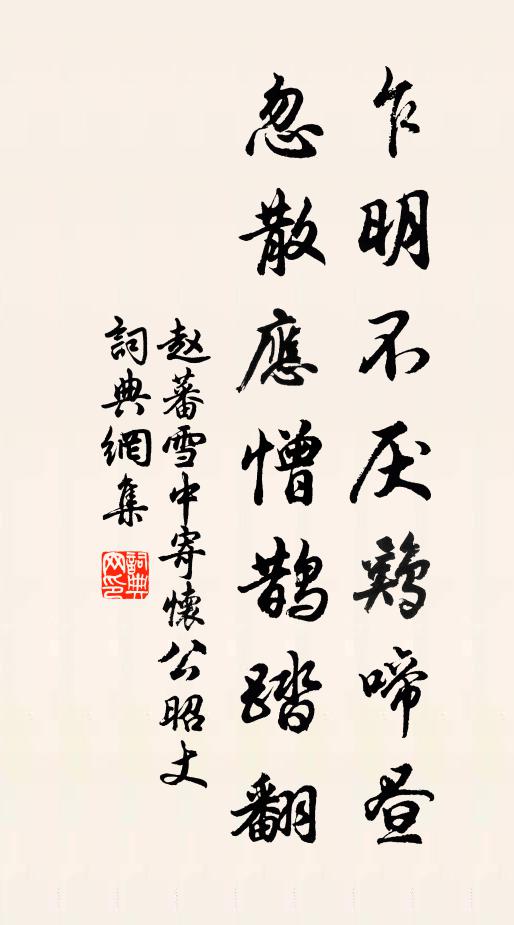 乍明不厌鷄啼昼
忽散應憎鵲踏翻
赵蕃雪中寄懷公昭丈
詞典網集
詞典网印